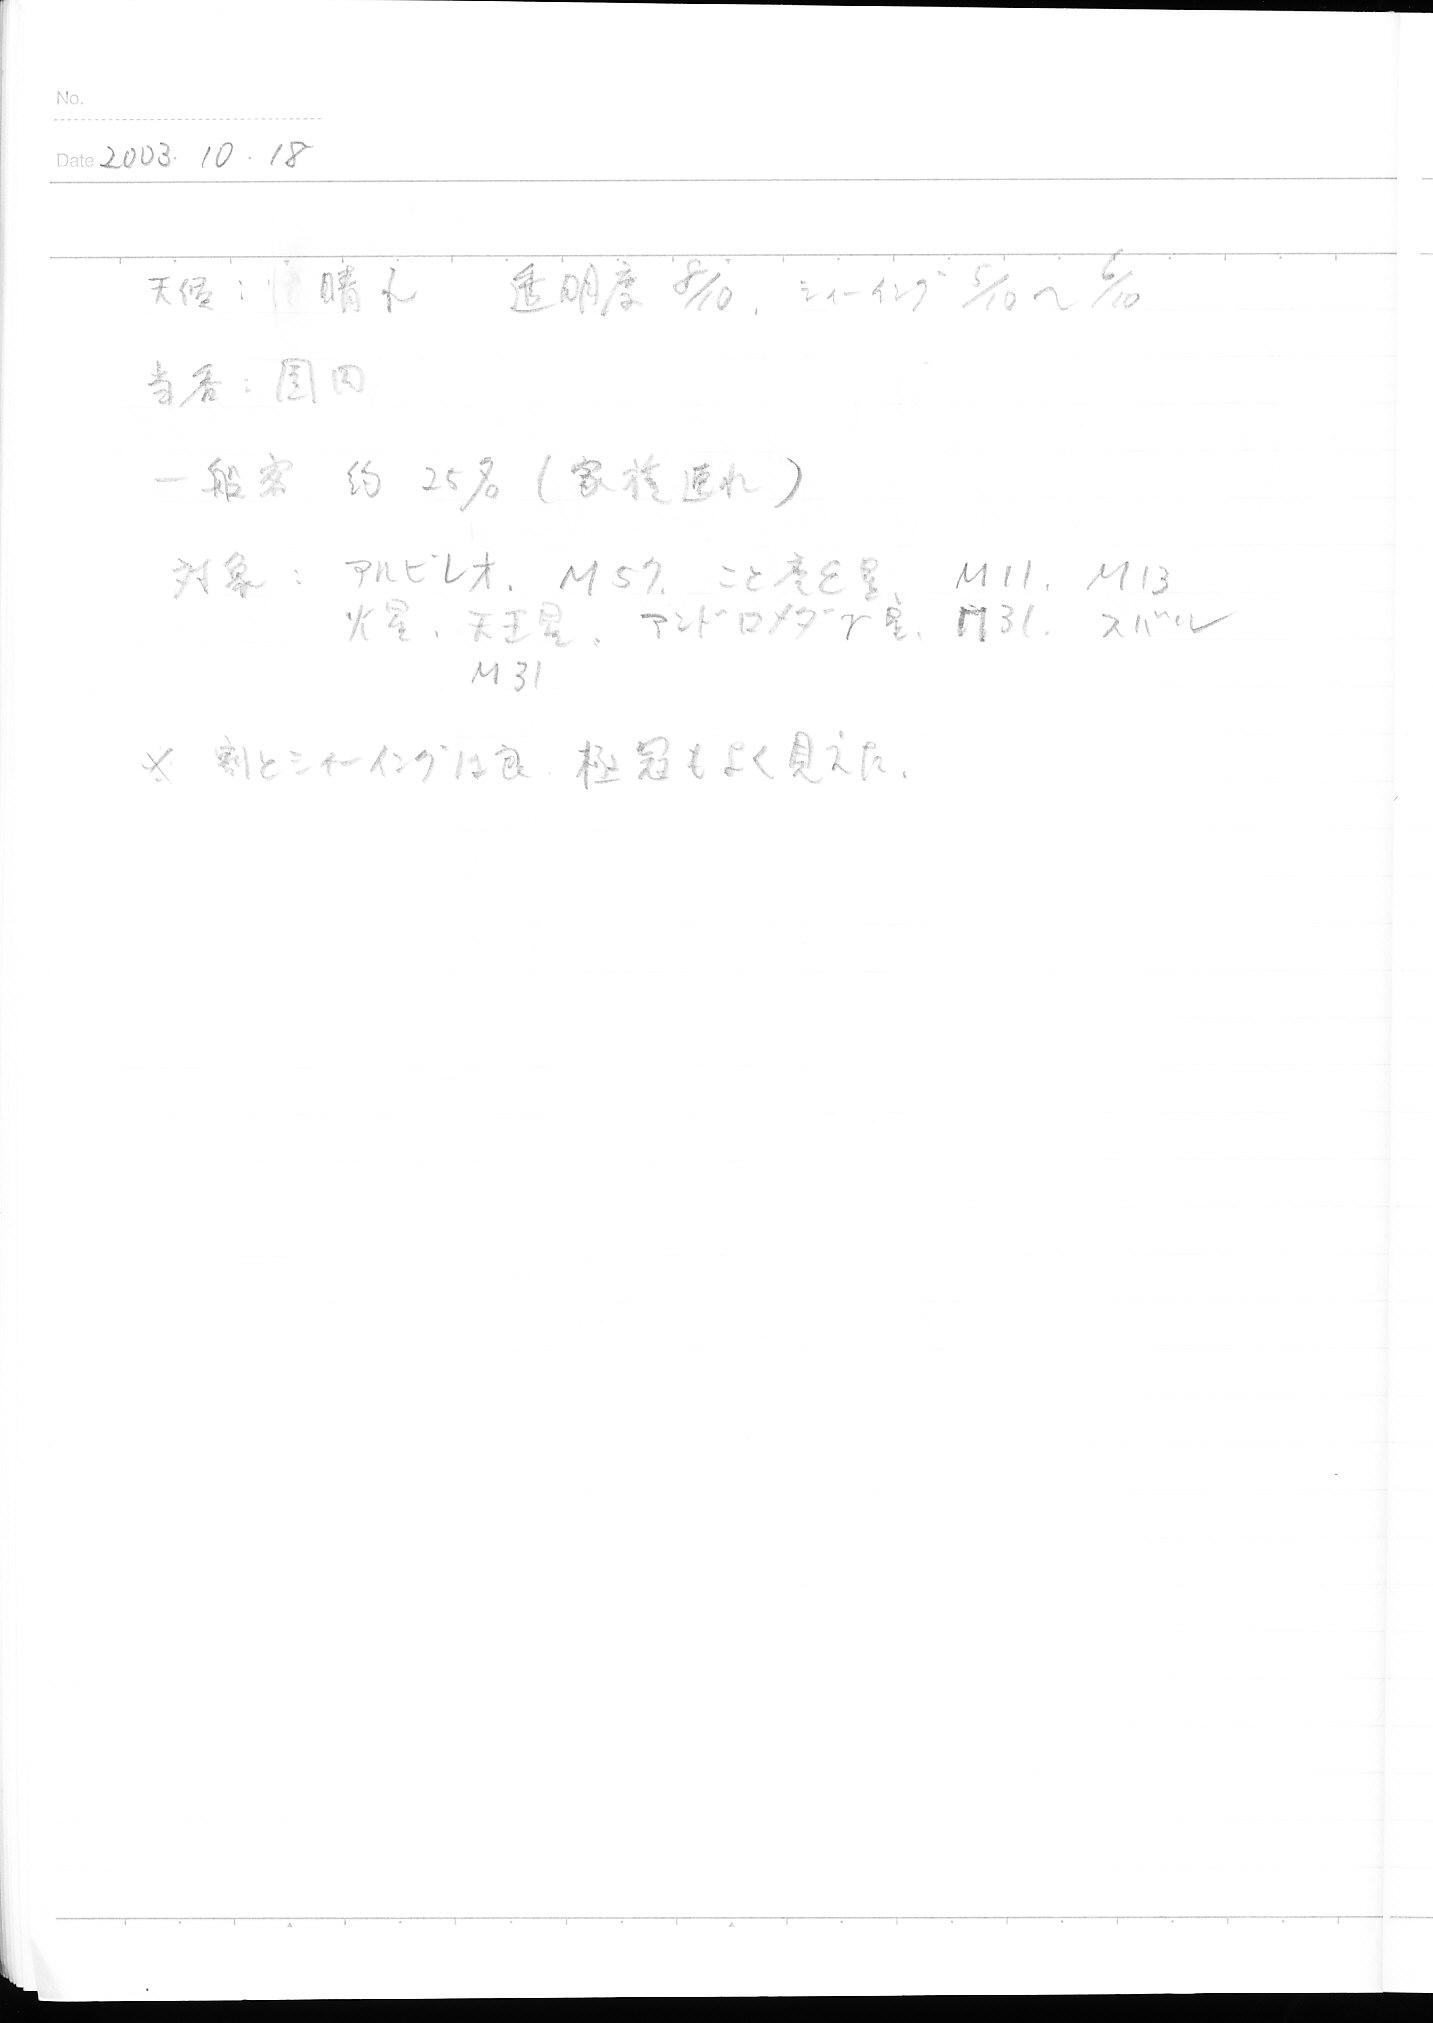 No.
Date 2003. 10. 18
天候: 晴れ 透明度 8/10, シーイング 5/10〜6/10
当番: 園田
一般客 約 25名 (家族連れ)
対象: アルビレオ、M57、こと座ε星、M11、M13
火星、天王星、アンドロメダγ星、M31、スバル
M31
※ 割とシーイングは良 極冠もよく見えた。